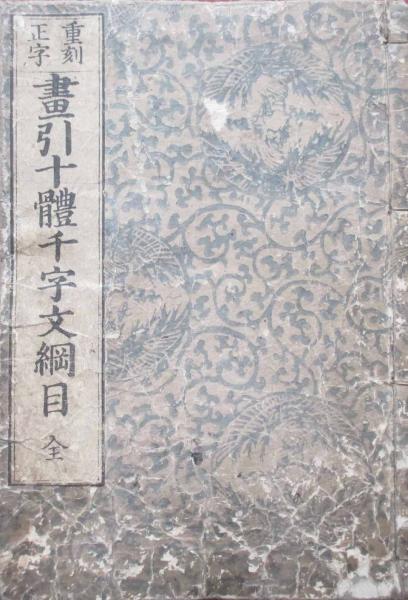 重刻
正字
畫引十體千字文綱目 全